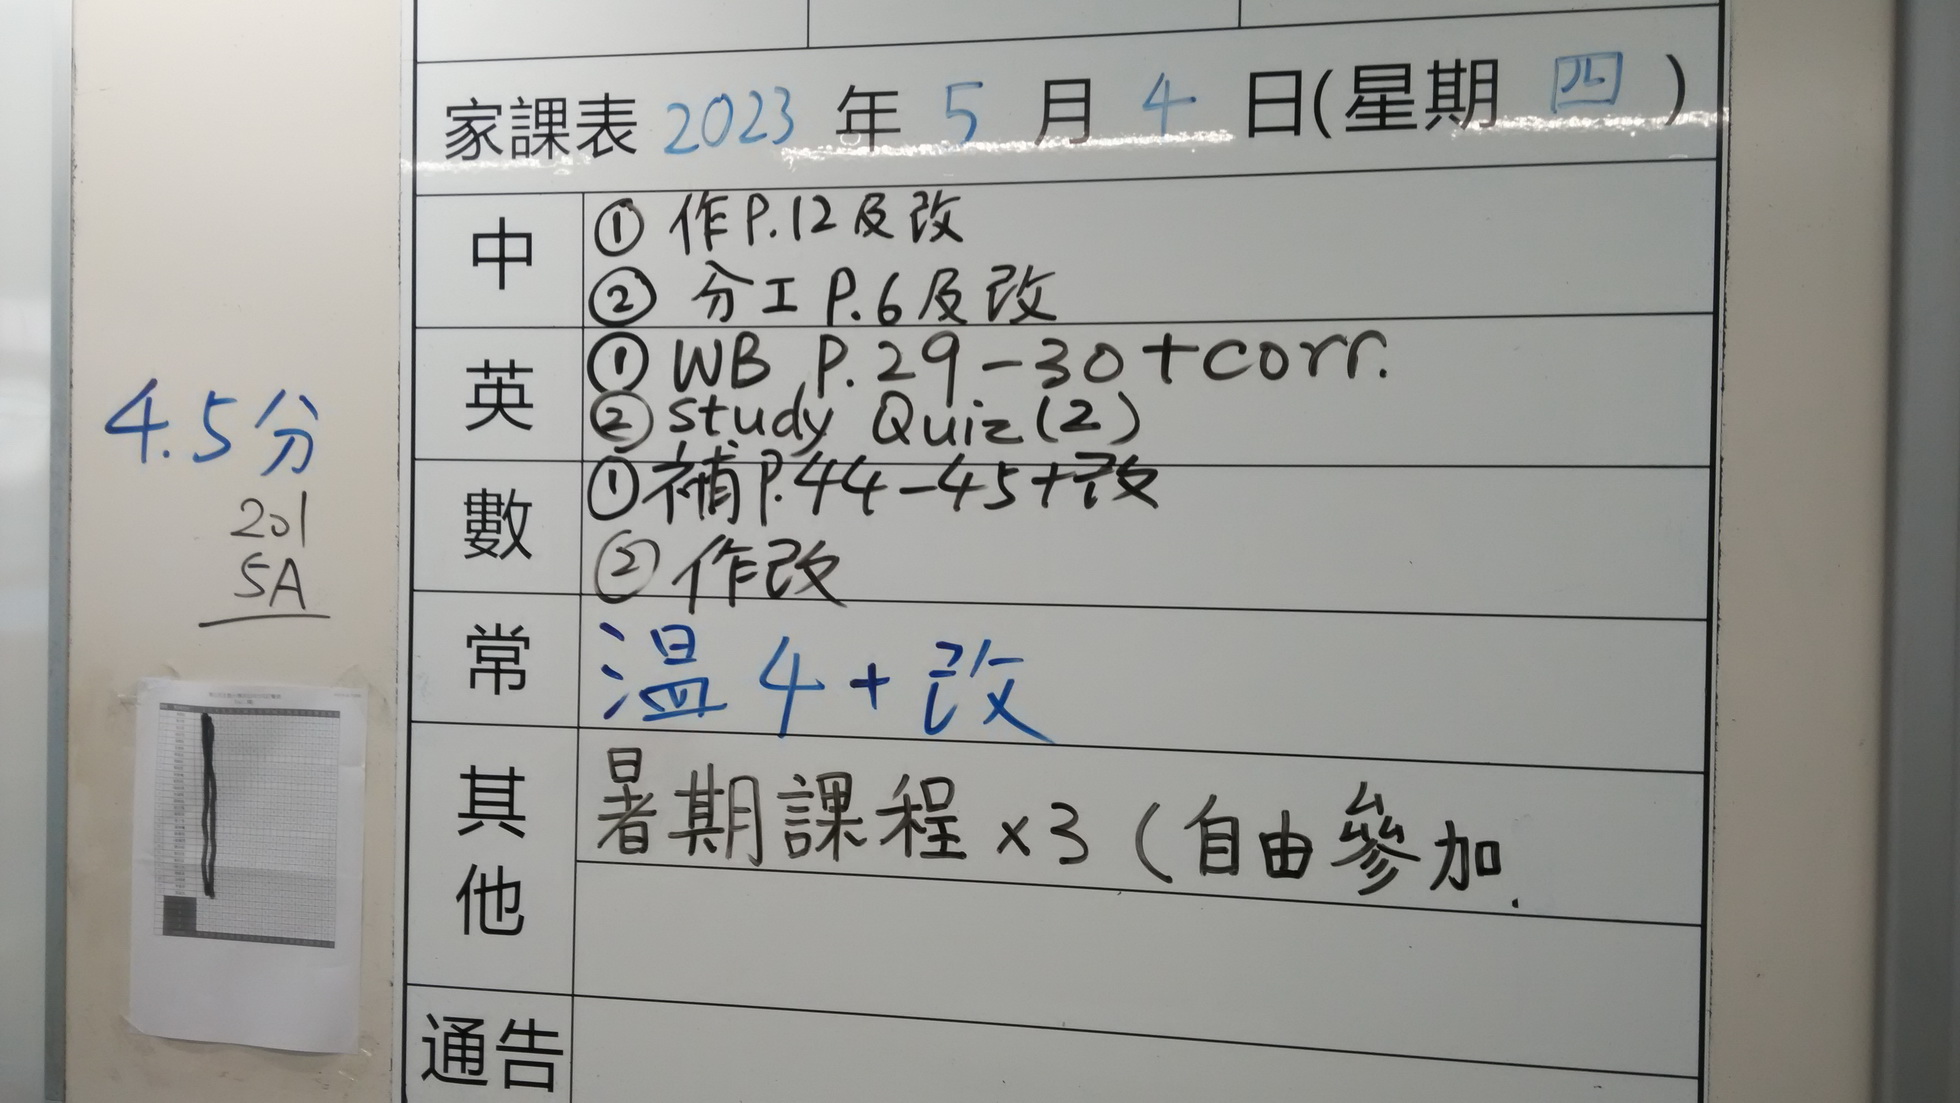 家課表 2023 年 5 月 4 日(星期 四 )
中
① 作P.12及改
② 分工 P.6及改
英
① WB P.29-30+corr.
② study Quiz(2)
數
①補P.44-45+改
② 作改
常
温 4 + 改
其他
暑期課程 x3 (自由參加.
通告
4.5分
201
5A